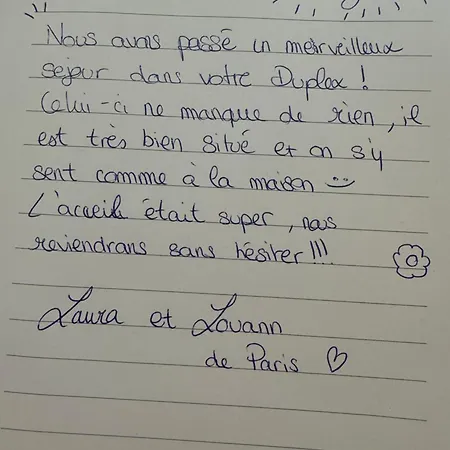 Nous avons passé un merveilleux
sejour dans votre Duplex !
Celui-ci ne manque de rien, il
est très bien situé et on s'y
sent comme à la maison
L'accueil était super, nous
reviendrons sans hésiter !!!
Laura et Louann
de Paris